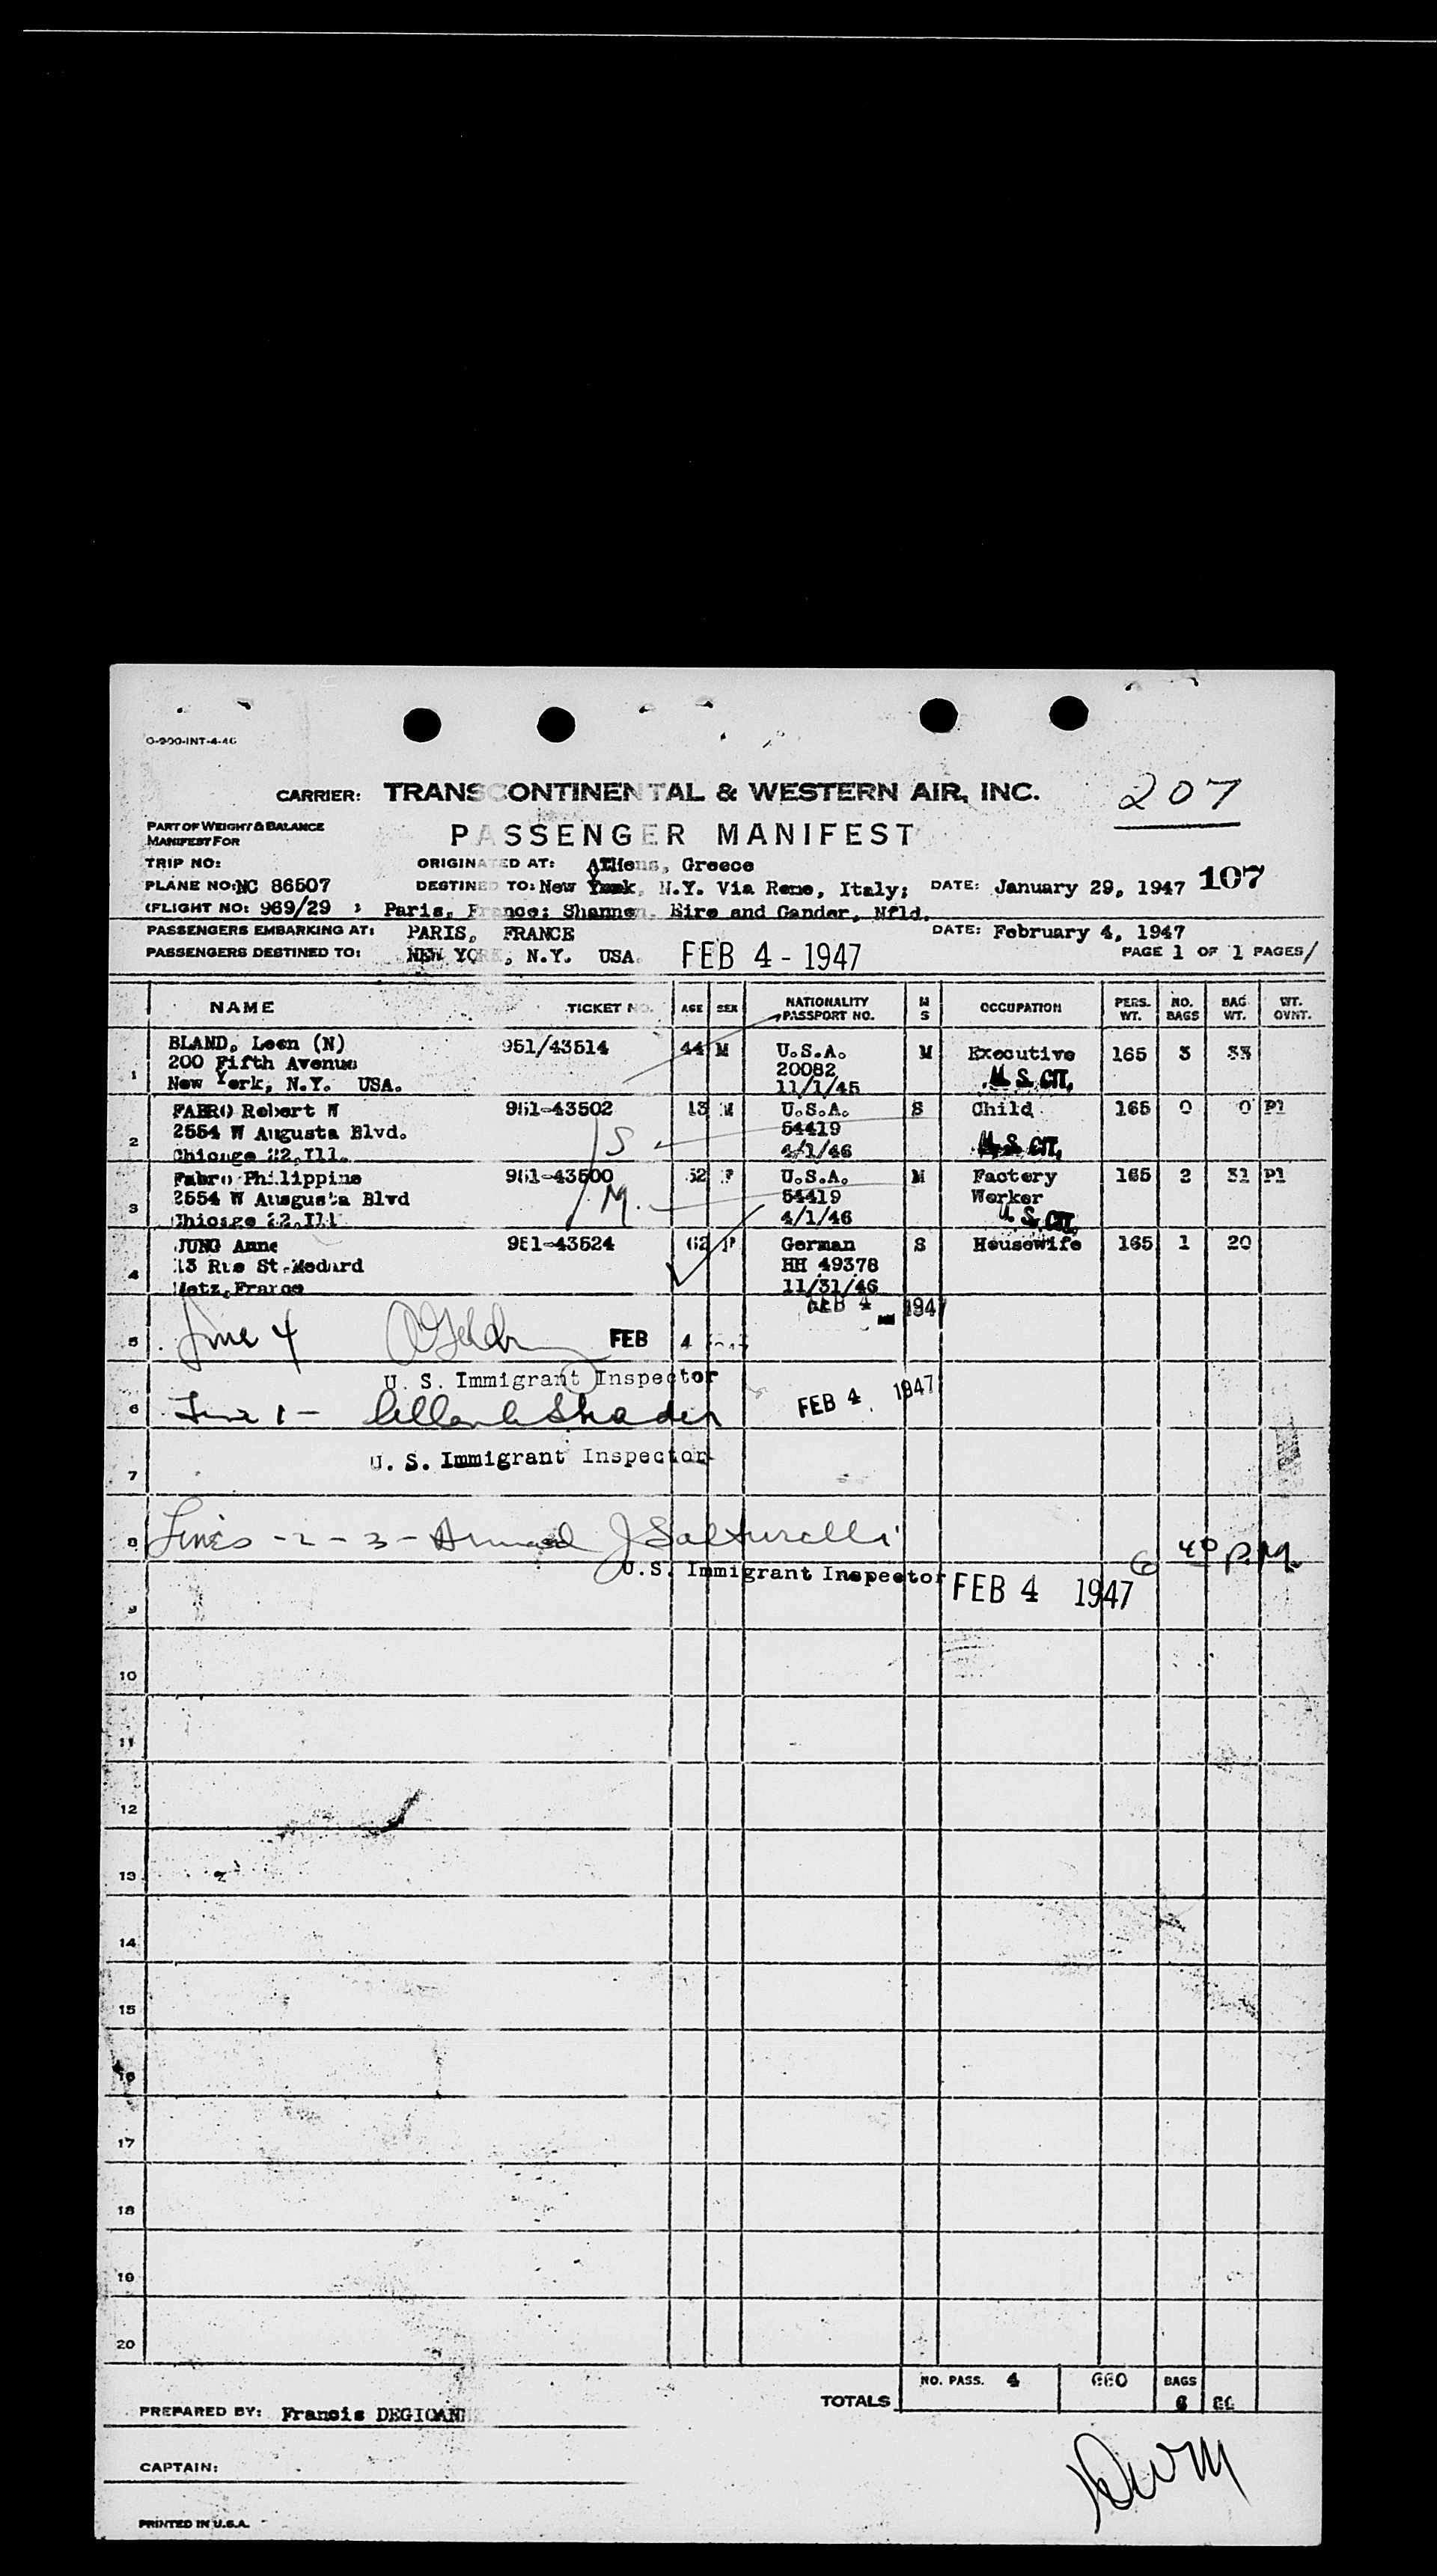 O-900-INT-4-46
CARRIER: TRANSCONTINENTAL & WESTERN AIR, INC.
207
PART OF WEIGHT & BALANCE
MANIFEST FOR
PASSENGER MANIFEST
TRIP NO:
ORIGINATED AT: Athens, Greece
PLANE NO: NC 86507
DESTINED TO: New York, N.Y. Via Rome, Italy; DATE: January 29, 1947 107
(FLIGHT NO: 969/29 ) Paris, France; Shannon, Eire and Gander, Nfld.
PASSENGERS EMBARKING AT: PARIS, FRANCE DATE: February 4, 1947
PASSENGERS DESTINED TO: NEW YORK, N.Y. USA. FEB 4 - 1947 PAGE 1 OF 1 PAGES/
NAME TICKET NO. AGE SEX NATIONALITY PASSPORT NO. M S OCCUPATION PERS. WT. NO. BAGS BAG WT. WT. OVNT.
BLAND, Leon (N) 951/43514 44 M U.S.A. M Executive 165 3 33
200 Fifth Avenue 20082
1 New York, N.Y. USA. 11/1/45 U.S. CIT,
FABRO Robert W 951-43502 13 M U.S.A. S Child 165 0 0 Pl
2 2554 W Augusta Blvd. S 54419
Chicago 22, Ill. 4/1/46 U.S. CIT,
Fabro Philippine 951-43500 52 F U.S.A. M Factory 165 2 31 Pl
3 2554 W Ausgusta Blvd M. 54419 Worker
Chicago 22, Ill 4/1/46 U.S. CIT,
JUNG Anne 951-43524 62 F German S Housewife 165 1 20
13 Rue St-Medard HH 49378
4 Metz, France 11/31/46
FEB 4 1947
5 Line 4 FEB 4
U. S. Immigrant Inspector
6 Line 1 - Shader FEB 4 1947
U. S. Immigrant Inspector
7
8 Lines - 2 - 3 - Armand J Salturelli
6 40 P.M.
U.S. Immigrant Inspector FEB 4 1947
9
10
11
12
13
14
15
16
17
18
19
20
TOTALS NO. PASS. 4 660 BAGS 6
PREPARED BY: Francis
CAPTAIN:
PRINTED IN U.S.A.